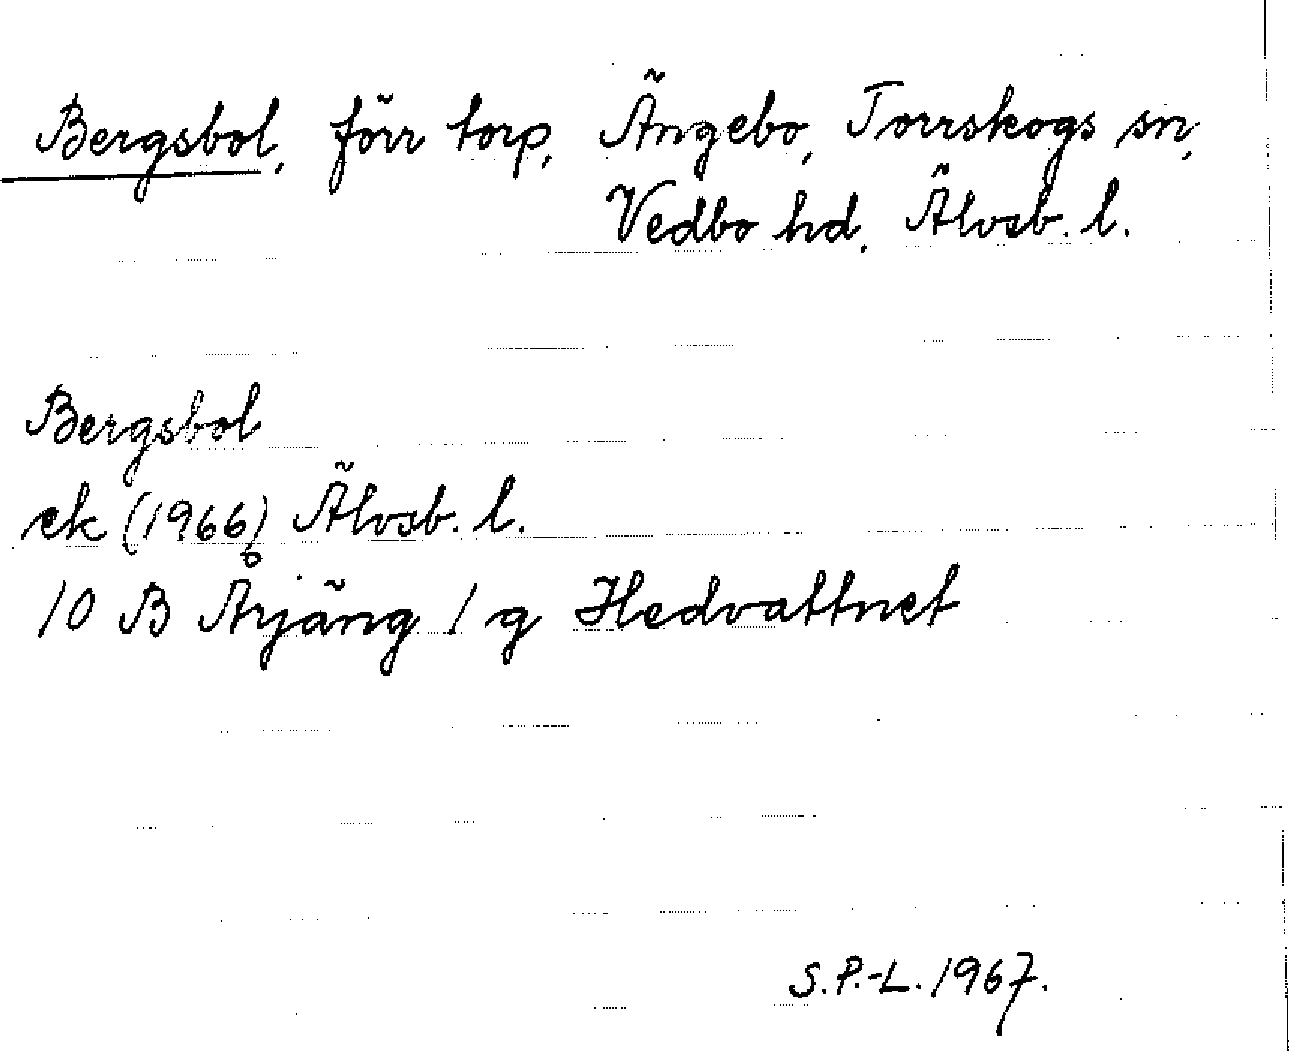 Bergsbol, förr torp, Ängebo, Torrskogs sn,
Vedbo hd, Älvsb. l.
Bergsbol
ek (1966) Älvsb. l.
10 B Årjäng 1 g Hedvattnet
S.P.-L. 1967.